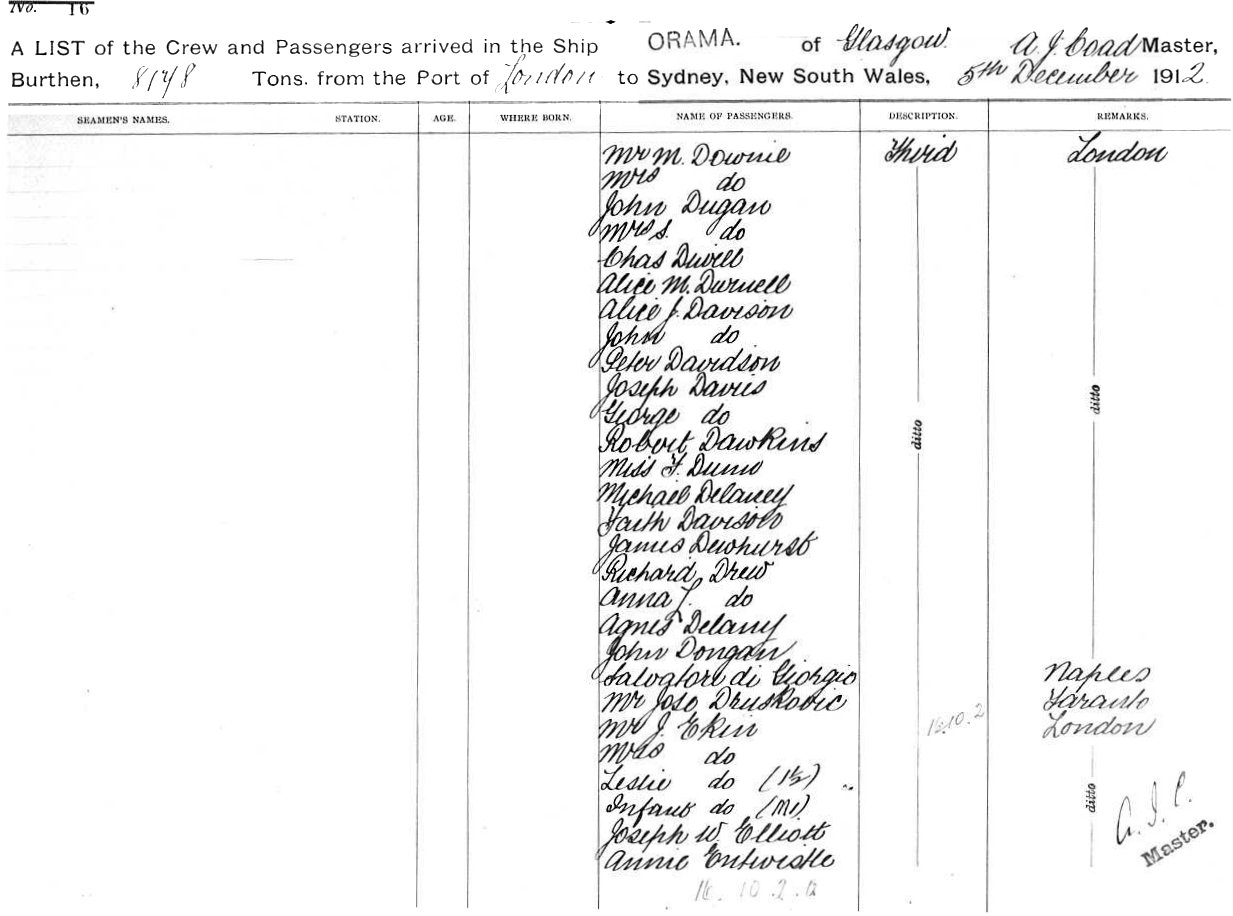 No. 16
A LIST of the Crew and Passengers arrived in the Ship ORAMA. of Glasgow. A. J. Coad Master,
Burthen, 8148 Tons. from the Port of London to Sydney, New South Wales, 5th December 1912.
SEAMEN'S NAMES. STATION. AGE. WHERE BORN. NAME OF PASSENGERS. DESCRIPTION. REMARKS.
Mr M. Downie Third London
Mrs do
John Dugan
Mrs S. do
Chas Duvell
Alice M. Durnell
Alice J. Davison
John do
Peter Davidson
Joseph Davies ditto
George do
Robert Dawkins ditto
Miss F. Dunn
Michael Delaney
Faith Davison
James Dewhurst
Richard Drew
Anna J. do
Agnes Delany
John Dongan
Salvatore di Giorgio Naples
Mr Joso Druskovic Taranto
Mr J. Ekin 16.10.2 London
Mrs do
Leslie do (1½)
Infant do (M1) ditto
Joseph W. Elliott A. J. C.
Annie Entwistle Master.
16. 10. 2. 12